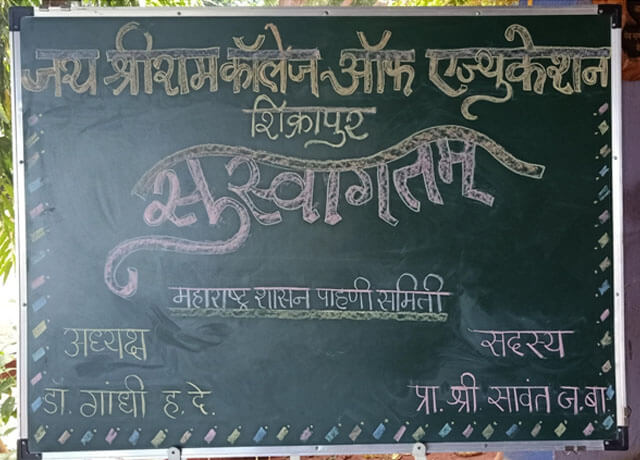 जय श्रीराम कॉलेज ऑफ एज्युकेशन
शिक्रापुर
सुस्वागतम्
महाराष्ट्र शासन पाहणी समिती
अध्यक्ष सदस्य
डॉ. गांधी ह. दे. प्रा. श्री. सावंत ज. बा.